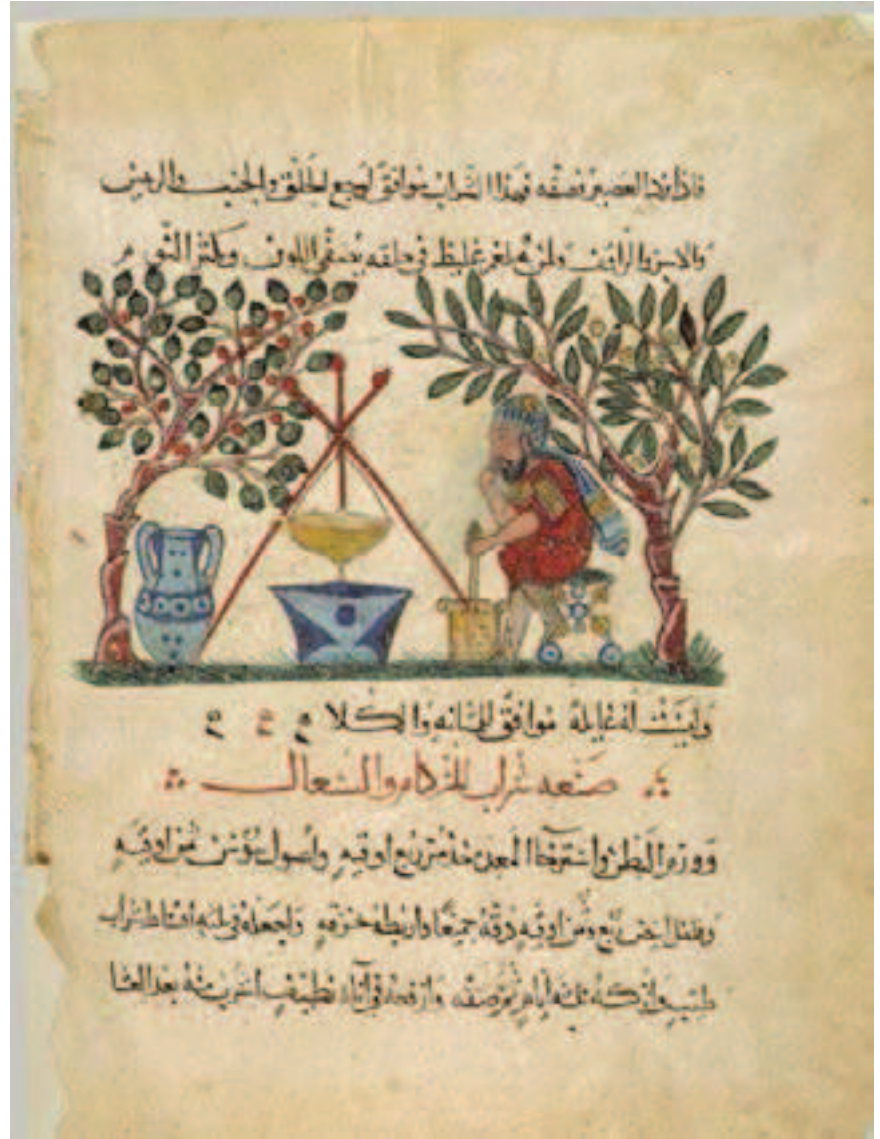 فاذا برد العصير نصفه فهذا الشراب موافق لوجع الحلق والجنب والريش
غليظ في حلقه يصفي اللون ويكثر النوم
وليست له غايلة موافق للمثانه والكلا
صنعه شراب للزكام والسعال
وورم البطن واسترخا المعدن خذ مر ربع اوقيه واصول سوسن ثمن اوقيه
وفلفل ابيض ربع وثمن اوقيه دقه جميعا واربطه خرقه واجعله في ثلثه اقساط شراب
طيب واتركه ثلثه ايام ثم صفه وارفعه في اناء نظيف اشرب منه بعد العشا